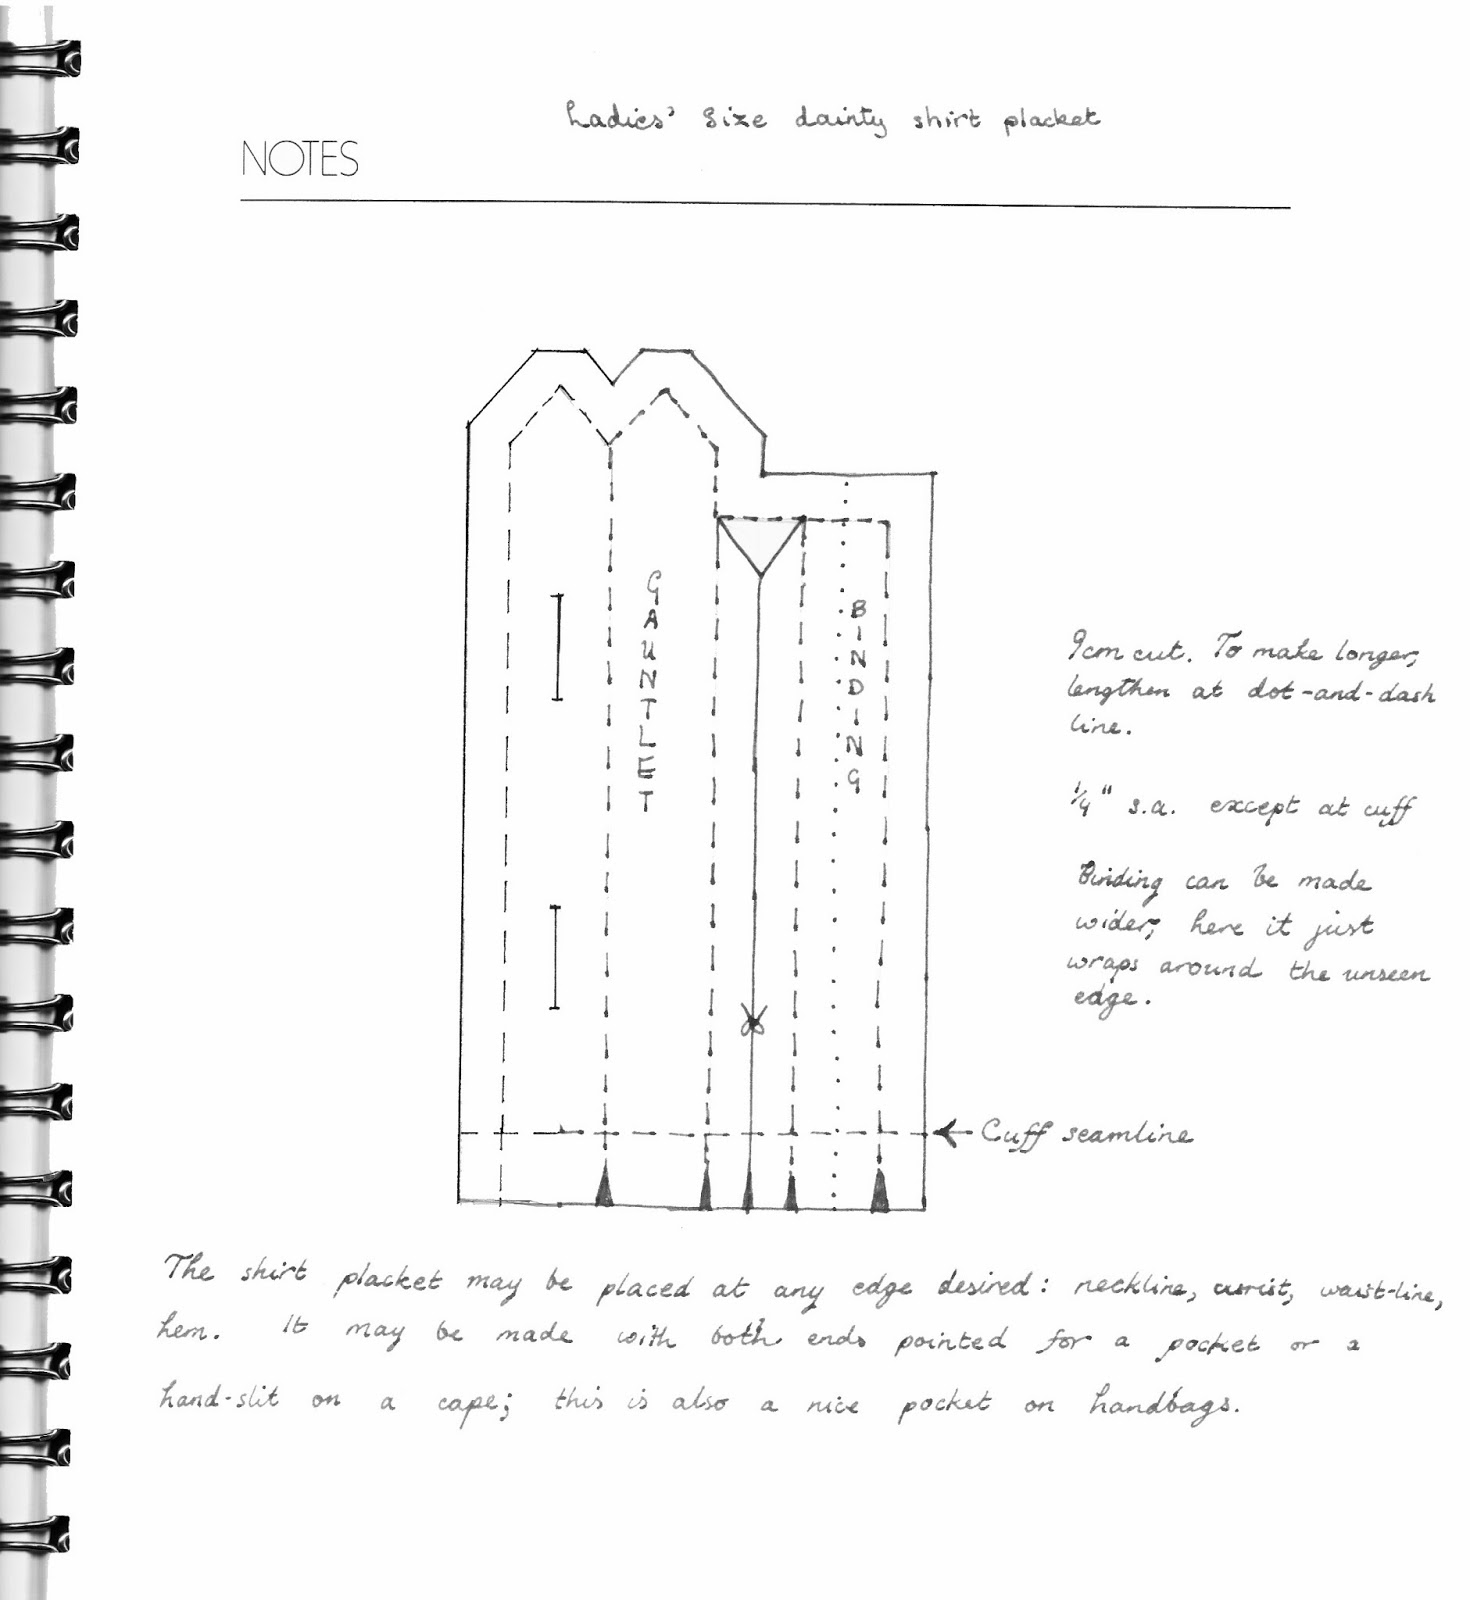 Ladies' size dainty shirt placket
NOTES
GAUNTLET
BINDING
9cm cut. To make longer,
lengthen at dot-and-dash
line.
1/4" s.a. except at cuff
Binding can be made
wider; here it just
wraps around the unseen
edge.
Cuff seamline
The shirt placket may be placed at any edge desired: neckline, wrist, waist-line,
hem. It may be made with both ends pointed for a pocket or a
hand-slit on a cape; this is also a nice pocket on handbags.